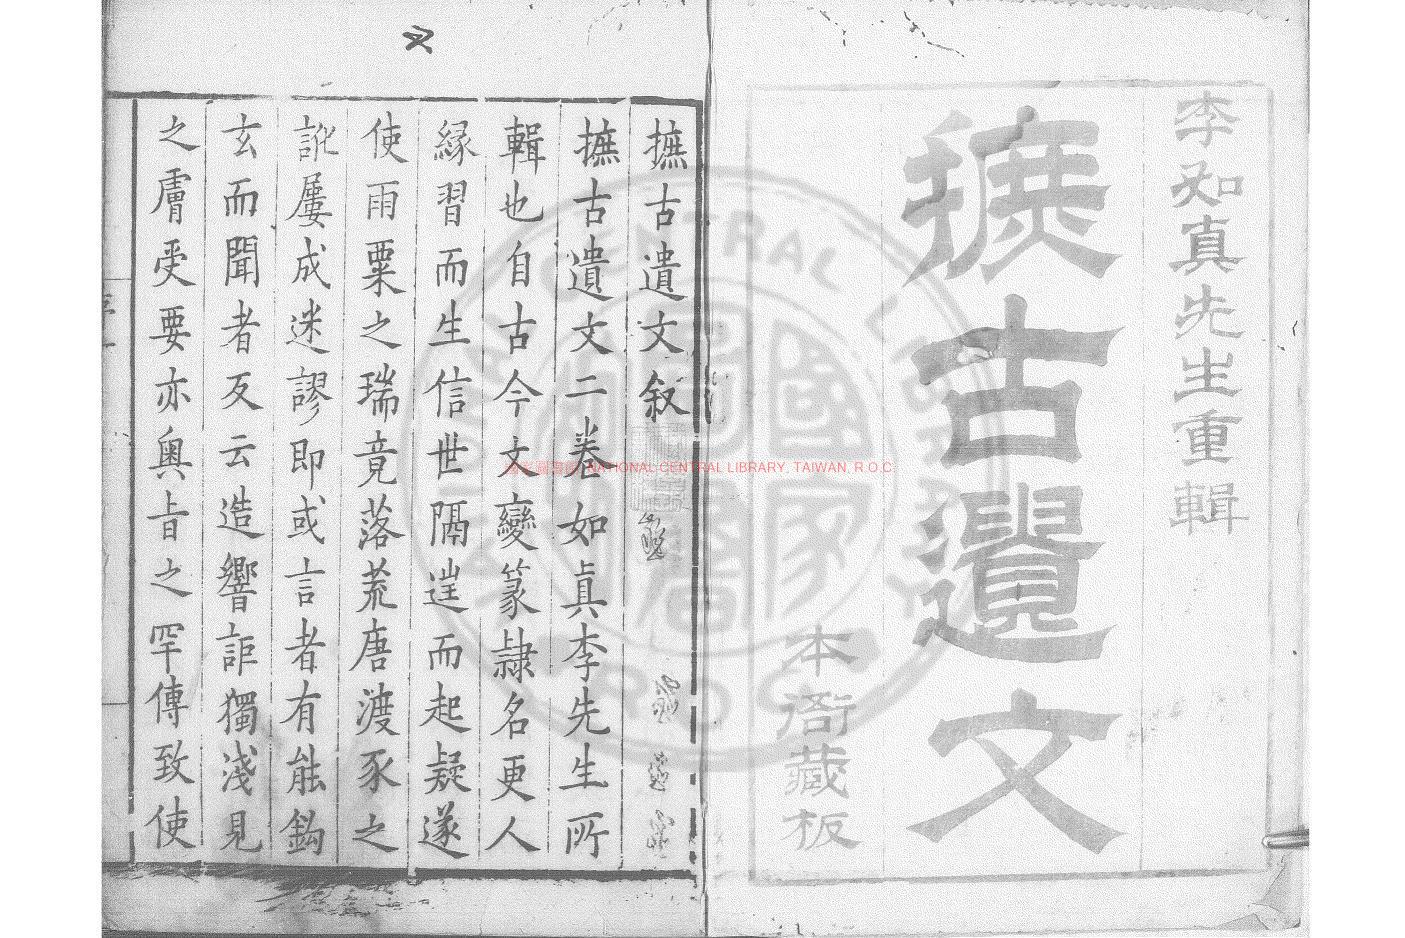 李如真先生重輯
摭古遺文
本衙藏板
摭古遺文敘
摭古遺文二卷如真李先生所
輯也自古今文變篆隷名更人
緣習而生信世隔逞而起疑遂
使雨粟之瑞竟落荒唐渡豕之
訛屢成迷謬即或言者有能鈎
玄而聞者反云造響詎獨淺見
之膚受要亦奧旨之罕傳致使
國家圖書館 NATIONAL CENTRAL LIBRARY, TAIWAN, R.O.C